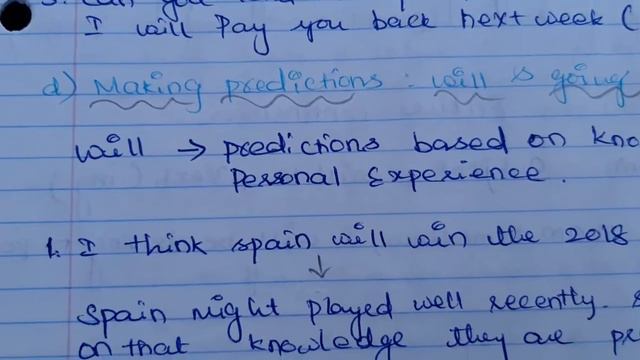 I will pay you back next week (
d) Making predictions : will & going
will → predictions based on kno
personal Experience.
1. I think spain will win the 2018
↓
Spain might played well recently.
on that knowledge they are pr